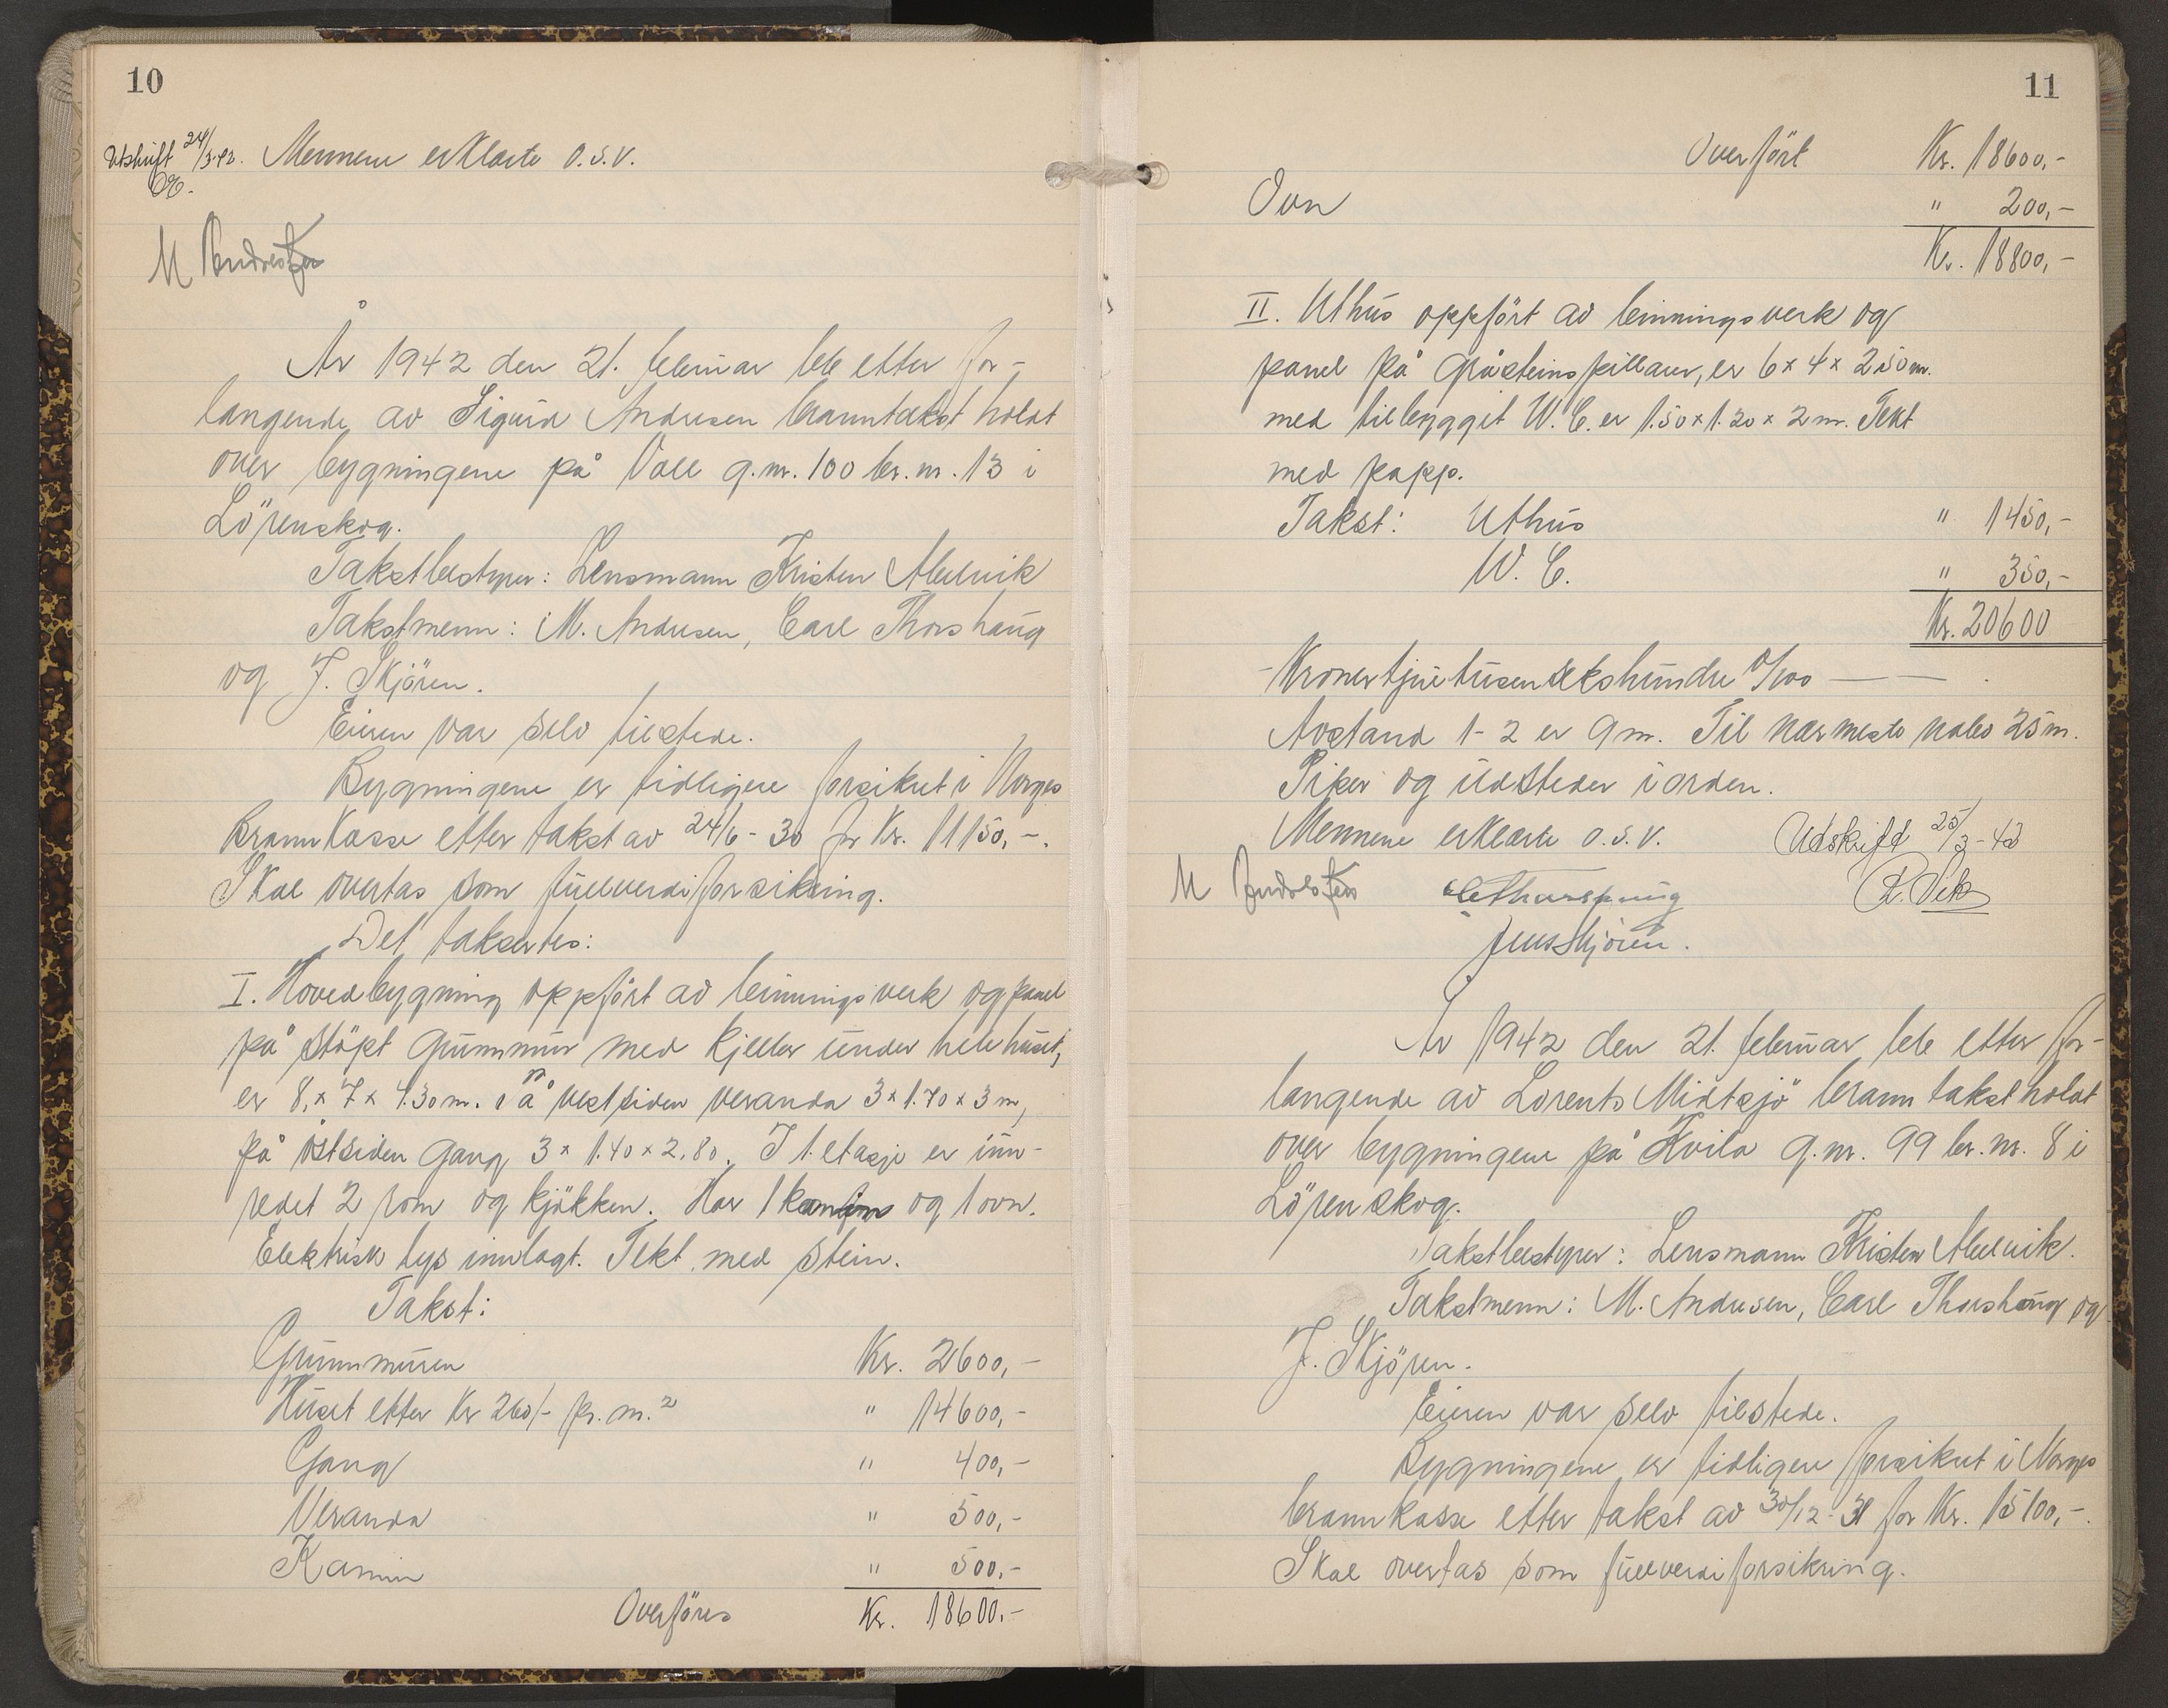 10
Utskrift 24/3-42. Mennene erklærte o.s.v.
M Andresen
År 1942 den 21. februar ble etter for-
langende av Sigurd Andresen branntakst holdt
over bygningene på Voll g.nr. 100 br.nr. 13 i
Lörenskog.
Takstbestyrer: Lensmann Kristen Abelvik
Takstmenn: M. Andresen, Carl Thorshaug
og J. Skjören.
Eieren var selv tilstede.
Bygningene er tidligere forsikret i Norges
Brannkasse etter takst av 24/6-30 for Kr. 11150,-.
Skal overtas som fullverdiforsikring.
Det taksertes:
I. Hovedbygning oppfört av binningsverk og panel
på stöpt grunnmur med kjeller under hele huset,
er 8,× 7× 4.30 m. På vestsiden veranda 3×1.70×3 m,
på östsiden gang 3×1.40×2.80. I 1. etasje er inn-
redet 2 rom og kjökken. Har 1 kamin og 1 ovn.
Elektrisk lys innlagt. Tekt med stein.
Takst:
Grunnmuren Kr. 2600,-
Huset etter Kr 260/- pr. m.² " 14600,-
Gang " 400,-
Veranda " 500,-
Kamin " 500,-
Overföres Kr. 18600.-
11
Overfört Kr. 18600,-
Ovn " 200,-
Kr. 18800,-
II. Uthus oppfört av binningsverk og
panel på gråsteinspillarer, er 6×4×2 50 m.
med tilbygget W.C. er 1.50×1.20×2 m. Tekt
med papp.
Takst: Uthus " 1450,-
W.C. " 350,-
Kr. 20600
-Kronertjuetusensekshundre 0/100 — —.
Avstand 1-2 er 9 m. Til nærmeste nabo 25 m.
Piper og ildsteder i orden.
Mennene erklærte o.s.v. Udskrift 25/3-42
M Andresen CThorshaug
Jens Skjören.
År 1942 den 21. februar ble etter for-
langende av Lorents Midtsjö branntakst holdt
over bygningene på Hvila g.nr. 99 br.nr. 8 i
Lörenskog.
Takstbestyrer: Lensmann Kristen Abelvik.
Takstmenn: M. Andresen, Carl Thorshaug og
J. Skjören.
Eieren var selv tilstede.
Bygningene er tidligere forsikret i Norges
brannkasse etter takst av 30/12-31 for Kr. 15100,-.
Skal overtas som fullverdiforsikring.